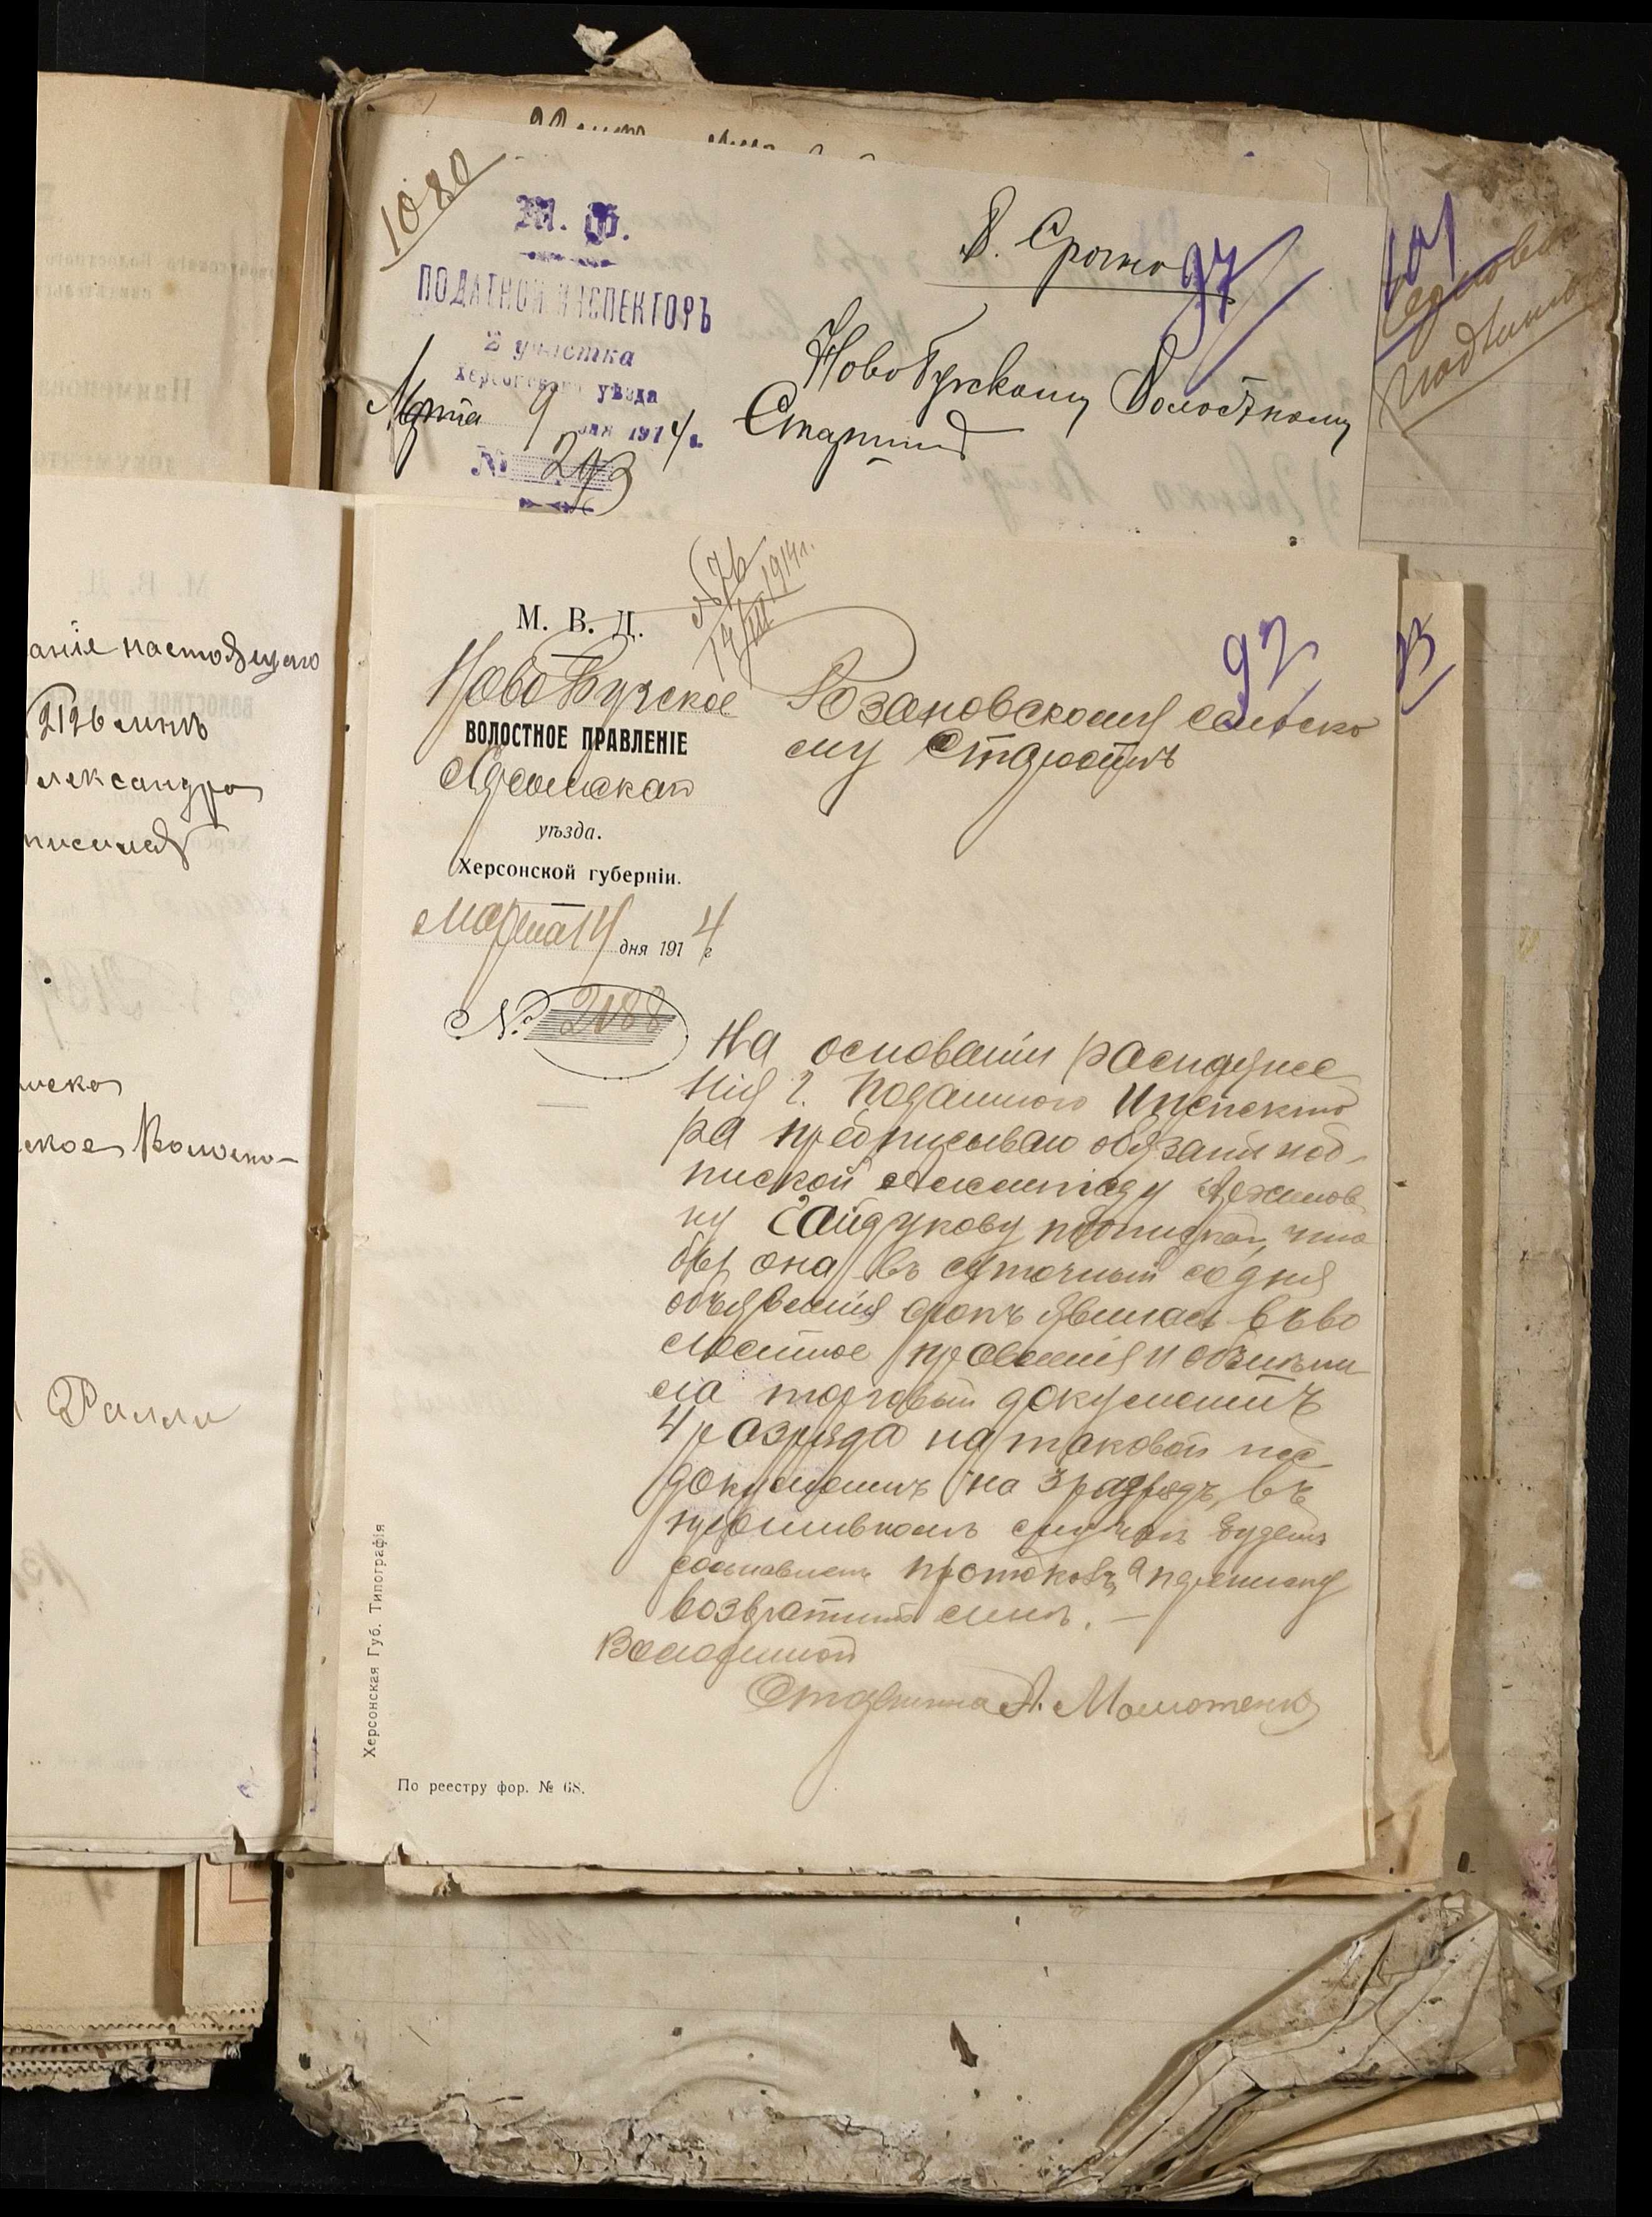 1080
М. Ф.
ПОДАТНОЙ ИНСПЕКТОРЪ
2 участка
Херсонскаго уѣзда
Марта 9 дня 1914 г.
№ 293
В. Срочно
97
НовоБугскому Волостному
Старшинѣ
101
М. В. Д.
НовоБугское
ВОЛОСТНОЕ ПРАВЛЕНІЕ
Херсонскаго
уѣзда.
Херсонской губерніи.
Марта 14 дня 1914 г
№ 2188
№ 76
14/III 1914 г.
92
93
Розановскому сельско
му Старостѣ
На основаніи распоряже
нія г. Податного Инспекто
ра предписываю обязать под-
пиской
Гайдукову подпиской, что
бы она въ суточный со дня
объявленія срокъ явилась въ во
лостное правленія и обмѣни
ла торговый документъ
4 разряда на таковой же
документъ на 3 разрядъ, въ
противномъ случаѣ будетъ
составленъ протоколъ, а подписку
возвратить мнѣ. —
Волостной
Старшина А. Молотенко
Херсонская Губ. Типографія
По реестру фор. № 68.
аніе настоящаго
2126 мнѣ
лександра
писался
ское Волостно-